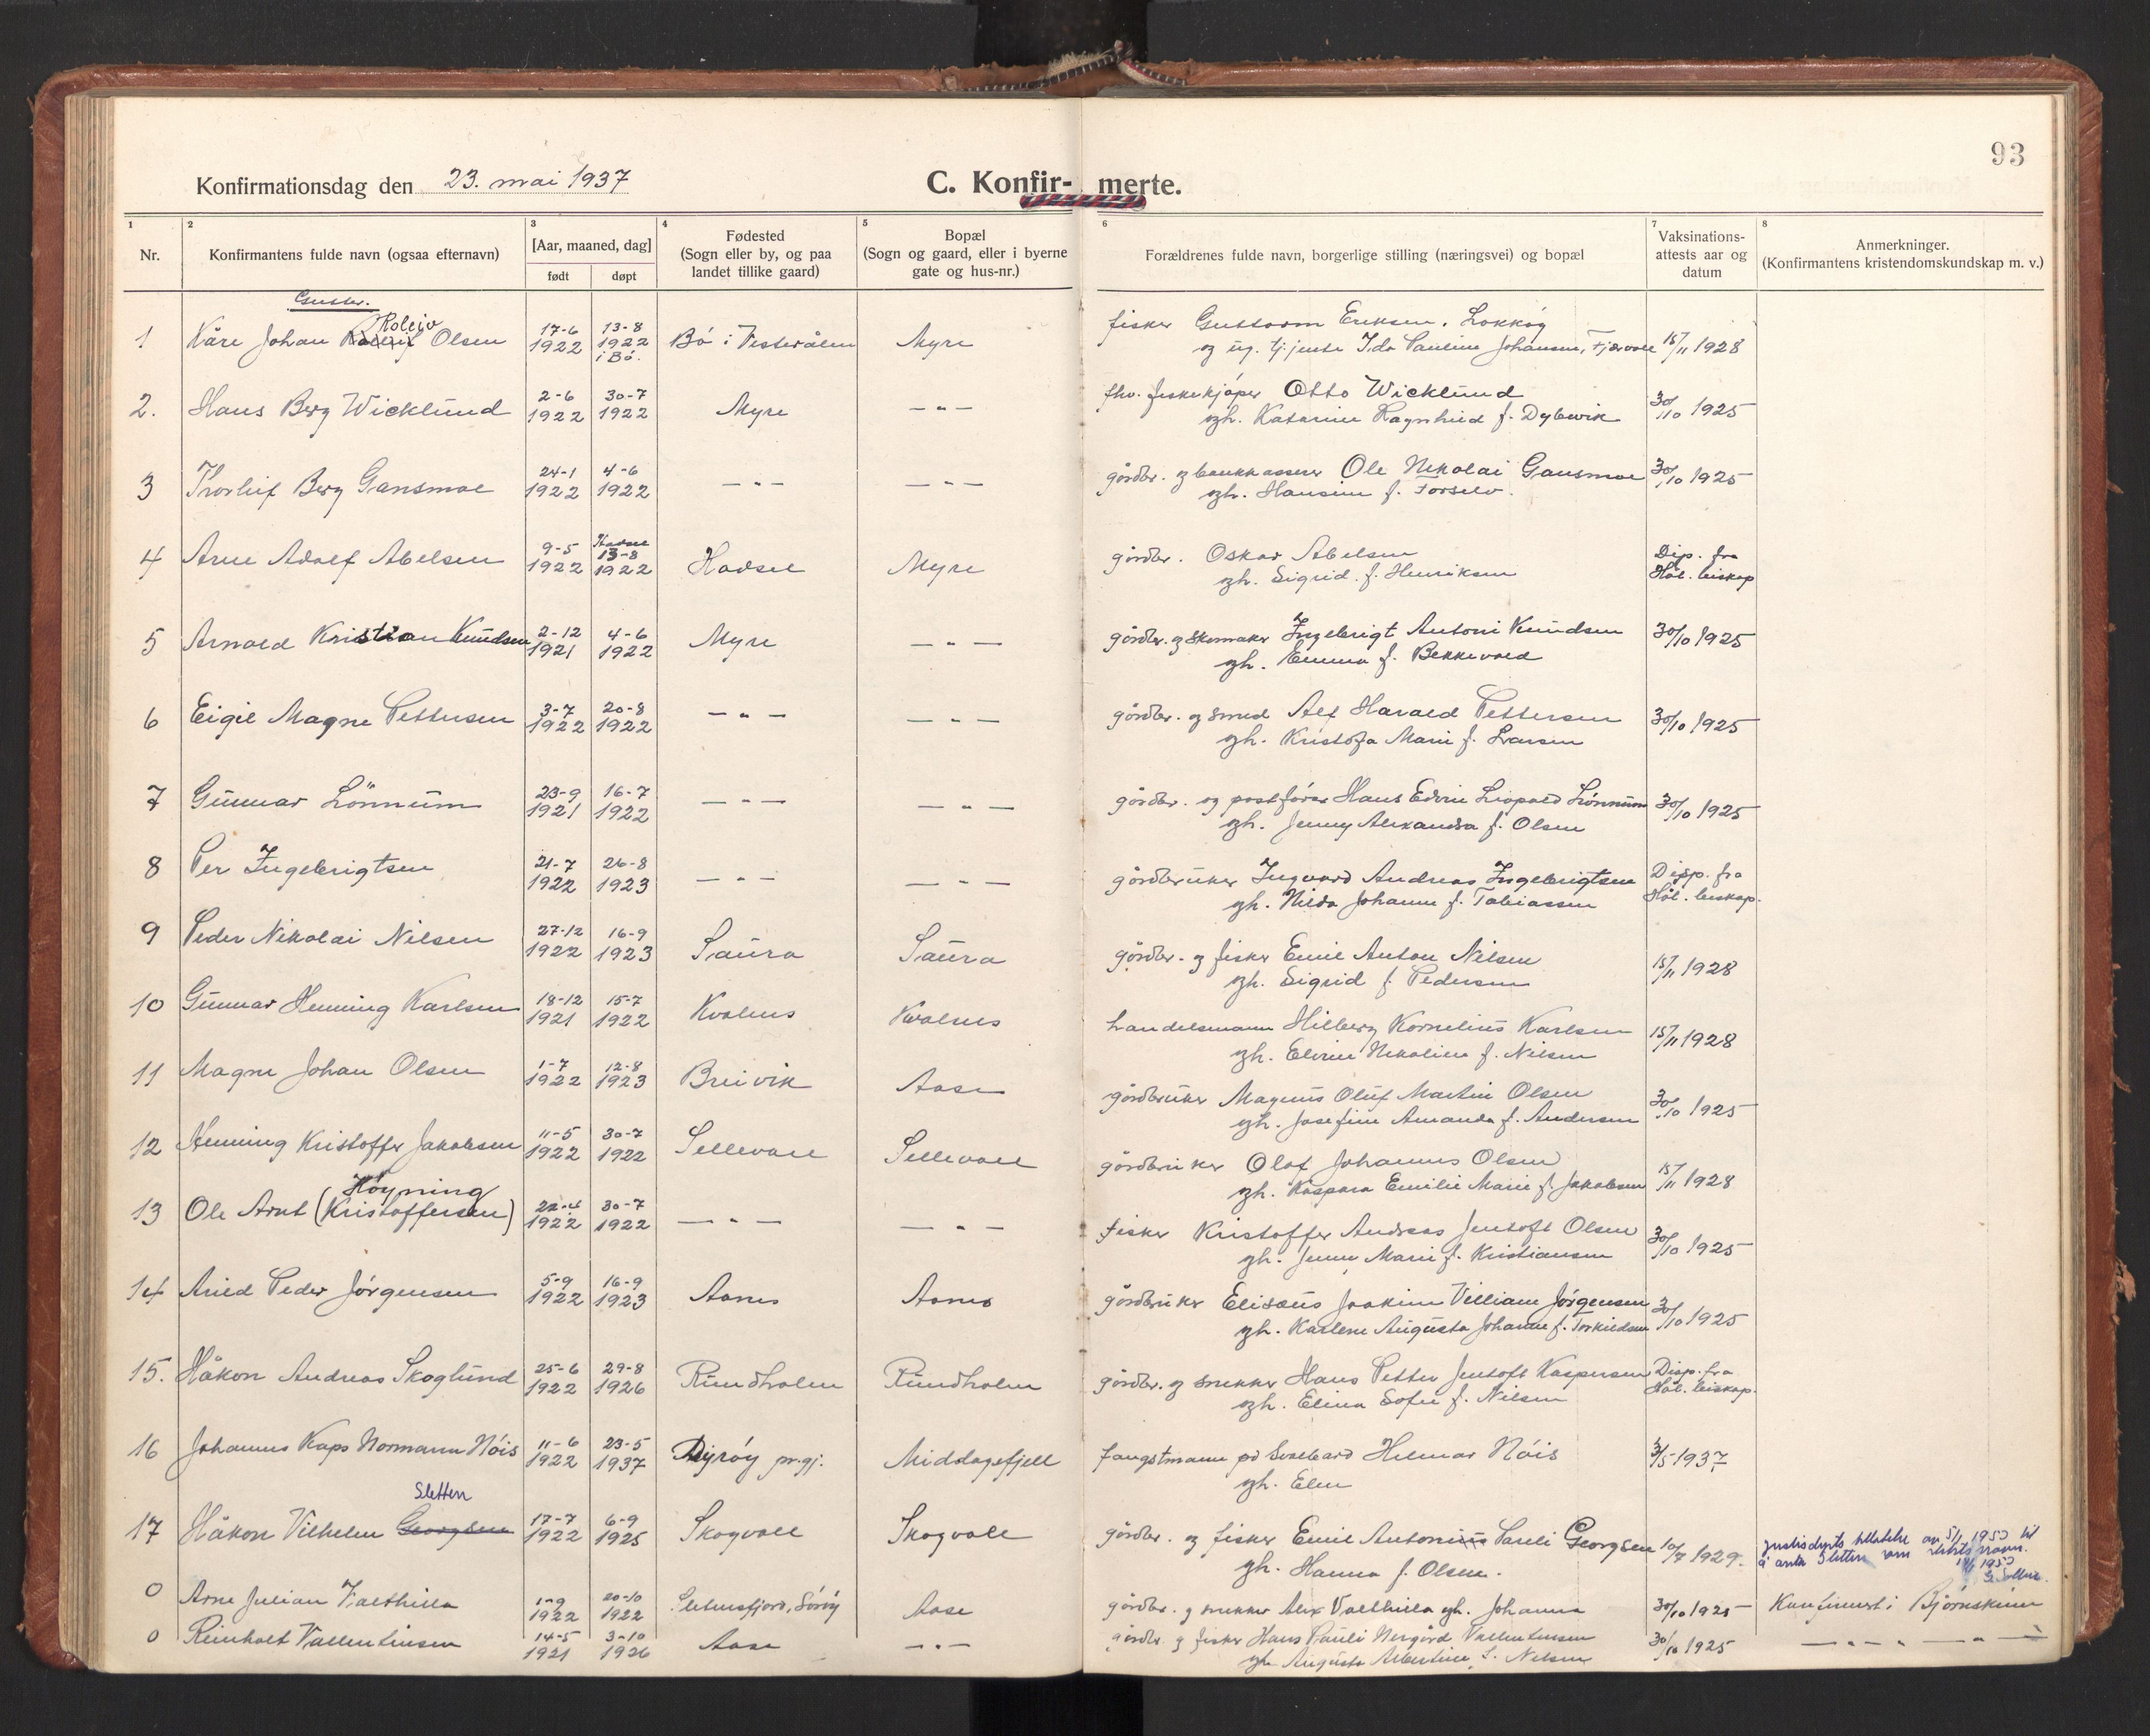 93
Konfirmationsdag den 23. mai 1937
C. Konfirmerte.
1 2 3 4 5 6 7 8
Nr.
Konfirmantens fulde navn (ogsaa efternavn)
[Aar, maaned, dag]
født døpt
Fødested
(Sogn eller by, og paa
landet tillike gaard)
Bopæl
(Sogn og gaard, eller i byerne
gate og hus-nr.)
Forældrenes fulde navn, borgerlige stilling (næringsvei) og bopæl
Vaksinations-
attests aar og
datum
Anmerkninger.
(Konfirmantens kristendomskundskap m. v.)
Roleiv
1 Kåre Johan Olsen 17-6 1922 13-8 1922 i Bö. Bö i Vesterålen Myre fisker Gustav Eriksen.
og ug. tj.jente Ida Pauline Johansen, 15/11 1928
2. Hans Berg Wicklund 2-6 1922 30-7 1922 Myre — " — fhv. fiskekjöper Otto Wicklund
gh. Katarine Ragnhild f. Dybwik 30/10 1925
3 Thorleif Berg Gansmoe 24-1 1922 4-6 1922 — " — — " — gårdbr. og bankkasserer Ole Nikolai Gansmoe
gh. Hansine f. Forselv. 30/10 1925
4 Arne Adolf Abelsen 9-5 1922 Hadsel 13-8 1922 Hadsel Myre gårdbr. Oskar Abelsen
gh. Sigrid f. Henriksen Disp. fra Hål.
5 Arnold Kristian Knudsen 2-12 1921 4-6 1922 Myre — " — gårdbr. og skomaker Ingebrigt Antoni Knudsen
gh. Emma f. Bekkevold 30/10 1925
6 Eigil Magne Pettersen 3-7 1922 20-8 1922 — " — — " — gårdbr. og smed Alf Harald Pettersen
gh. Kristofa Marie f. Larsen 30/10 1925
7 Gunnar Lönnum 23-9 1921 16-7 1922 — " — — " — gårdbr. og postförer Hans Edvin Leopold Lönnum
gh. Jenny Alexandra f. Olsen 30/10 1925
8 Per Ingebrigtsen 21-7 1922 26-8 1923 — " — — " — gårdbruker Ingvard Andreas Ingebrigtsen
gh. Hilda Johanne f. Tobiassen Disp. fra Hål.
9 Peder Nikolai Nilsen 27-12 1922 16-9 1923 Saura Saura gårdbr. og fisker Emil Anton Nilsen
gh. Sigrid f. Pedersen 15/11 1928
10 Gunnar Henning Karlsen 18-12 1921 15-7 1922 Kvalnes Kvalnes handelsmann Hilberg Kornelius Karlsen
gh. Elvine Nikoline f. Nilsen 15/11 1928
11 Magne Johan Olsen 1-7 1922 12-8 1923 Breivik Aase gårdbruker Magnus Oluf Martin Olsen
gh. Josefine Amanda f. Andersen 30/10 1925
12 Henning Kristoffer Jakobsen 11-5 1922 30-7 1922 Sellevoll Sellevoll gårdbruker Olaf Johannes Olsen
gh. Kaspara Emilie Marie f. Jakobsen 15/11 1928
Höyning
13 Ole Arnt (Kristoffersen) 22-4 1922 30-7 1922 — " — — " — fisker Kristoffer Andreas Jentoft Olsen
gh. Jenny Marie f. Kristiansen 30/10 1925
14 Arild Peder Jörgensen 5-9 1922 16-9 1923 Aanes Aanes gårdbruker Elisæus Joakim Villiam Jörgensen
gh. Karlene Augusta Johanne f. Torkildsen 30/10 1925
15. Håkon Andreas Skoglund 25-6 1922 29-8 1926 Rundholm Rundholm gårdbr. og snekker Hans Petter Jentoft Kaspersen
gh. Elina Sofie f. Nilsen Disp. fra Hål.
16 Johannes Kaps Normann Nöis 11-6 1922 23-5 1937 Dyröy pr.gj. Middagsfjell fangstmann på Svalbard Hilmar Nöis
gh. Ellen 3/5 1937
Sletten
17 Håkon Vilhelm Georgsen 17-7 1922 6-9 1925 Skogvoll Skogvoll gårdbr. og fisker Emil Antonius Pauli Georgsen
gh. Hanna f. Olsen. 10/7 1929. justisdepts tillatelse av 5/1 1950 til
å anta Sletten som slektsnavn.
0 Arne Julian Valthilla 1-9 1922 20-10 1922 Aase gårdbr. og snekker Alex Valthilla gh. Johanna 30/10 1925 Konfirmert i Björnskinn
0 Reinholt Vallentinsen 14-5 1921 3-10 1926 Aase — " — gårdbr. og fisker Hans Pauli Nergård Vallentinsen
gh. Augusta Albertine f. Nilsen 30/10 1925 — " — " — " —